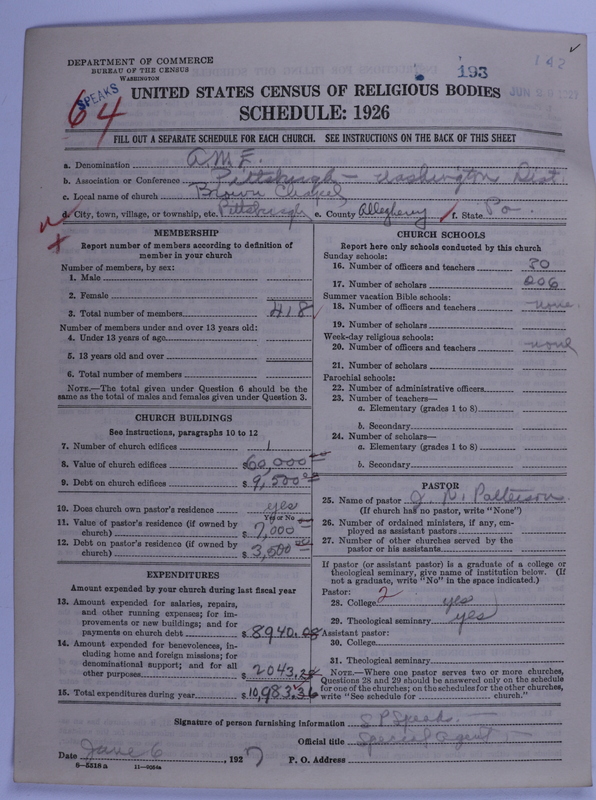 142
193
DEPARTMENT OF COMMERCE
BUREAU OF THE CENSUS
WASHINGTON
SPEAKS
64
JUN 29 1927
UNITED STATES CENSUS OF RELIGIOUS BODIES
SCHEDULE: 1926
FILL OUT A SEPARATE SCHEDULE FOR EACH CHURCH. SEE INSTRUCTIONS ON THE BACK OF THIS SHEET
a. Denomination A.M.E.
b. Association or Conference Pittsburgh - Washington Dist.
c. Local name of church Brown Chapel
d. City, town, village, or township, etc. Pittsburgh e. County Allegheny f. State Pa.
MEMBERSHIP
Report number of members according to definition of
member in your church
Number of members, by sex:
1. Male
2. Female
3. Total number of members 418
Number of members under and over 13 years old:
4. Under 13 years of age
5. 13 years old and over
6. Total number of members
NOTE.—The total given under Question 6 should be the
same as the total of males and females given under Question 3.
CHURCH BUILDINGS
See instructions, paragraphs 10 to 12
7. Number of church edifices 1
8. Value of church edifices $60,000 00
9. Debt on church edifices $9,500 00
10. Does church own pastor's residence? yes
Yes or No
11. Value of pastor's residence (if owned by
church) $7,000
12. Debt on pastor's residence (if owned by
church) $3,500 00
EXPENDITURES
Amount expended by your church during last fiscal year
13. Amount expended for salaries, repairs,
and other running expenses; for im-
provements or new buildings; and for
payments on church debt $8940.
14. Amount expended for benevolences, in-
cluding home and foreign missions; for
denominational support; and for all
other purposes $2043.
15. Total expenditures during year $10,983.36
CHURCH SCHOOLS
Report here only schools conducted by this church
Sunday schools:
16. Number of officers and teachers 30
17. Number of scholars 206
Summer vacation Bible schools:
18. Number of officers and teachers none
19. Number of scholars
Week-day religious schools:
20. Number of officers and teachers none
21. Number of scholars
Parochial schools:
22. Number of administrative officers
23. Number of teachers—
a. Elementary (grades 1 to 8)
b. Secondary
24. Number of scholars—
a. Elementary (grades 1 to 8)
b. Secondary
PASTOR
25. Name of pastor J. N. Patterson
(If church has no pastor, write "None")
26. Number of ordained ministers, if any, em-
ployed as assistant pastors
27. Number of other churches served by the
pastor or his assistants
If pastor (or assistant pastor) is a graduate of a college or
theological seminary, give name of institution below. (If
not a graduate, write "No" in the space indicated.)
Pastor:
28. College 2 yes
29. Theological seminary yes
Assistant pastor:
30. College
31. Theological seminary
NOTE.—Where one pastor serves two or more churches,
Questions 28 and 29 should be answered only on the schedule
for one of the churches; on the schedules for the other churches,
write "See schedule for church."
Signature of person furnishing information S P Speaks
Official title Special agent
Date June 6, 1927 P. O. Address
6-5518 a 11-9054a